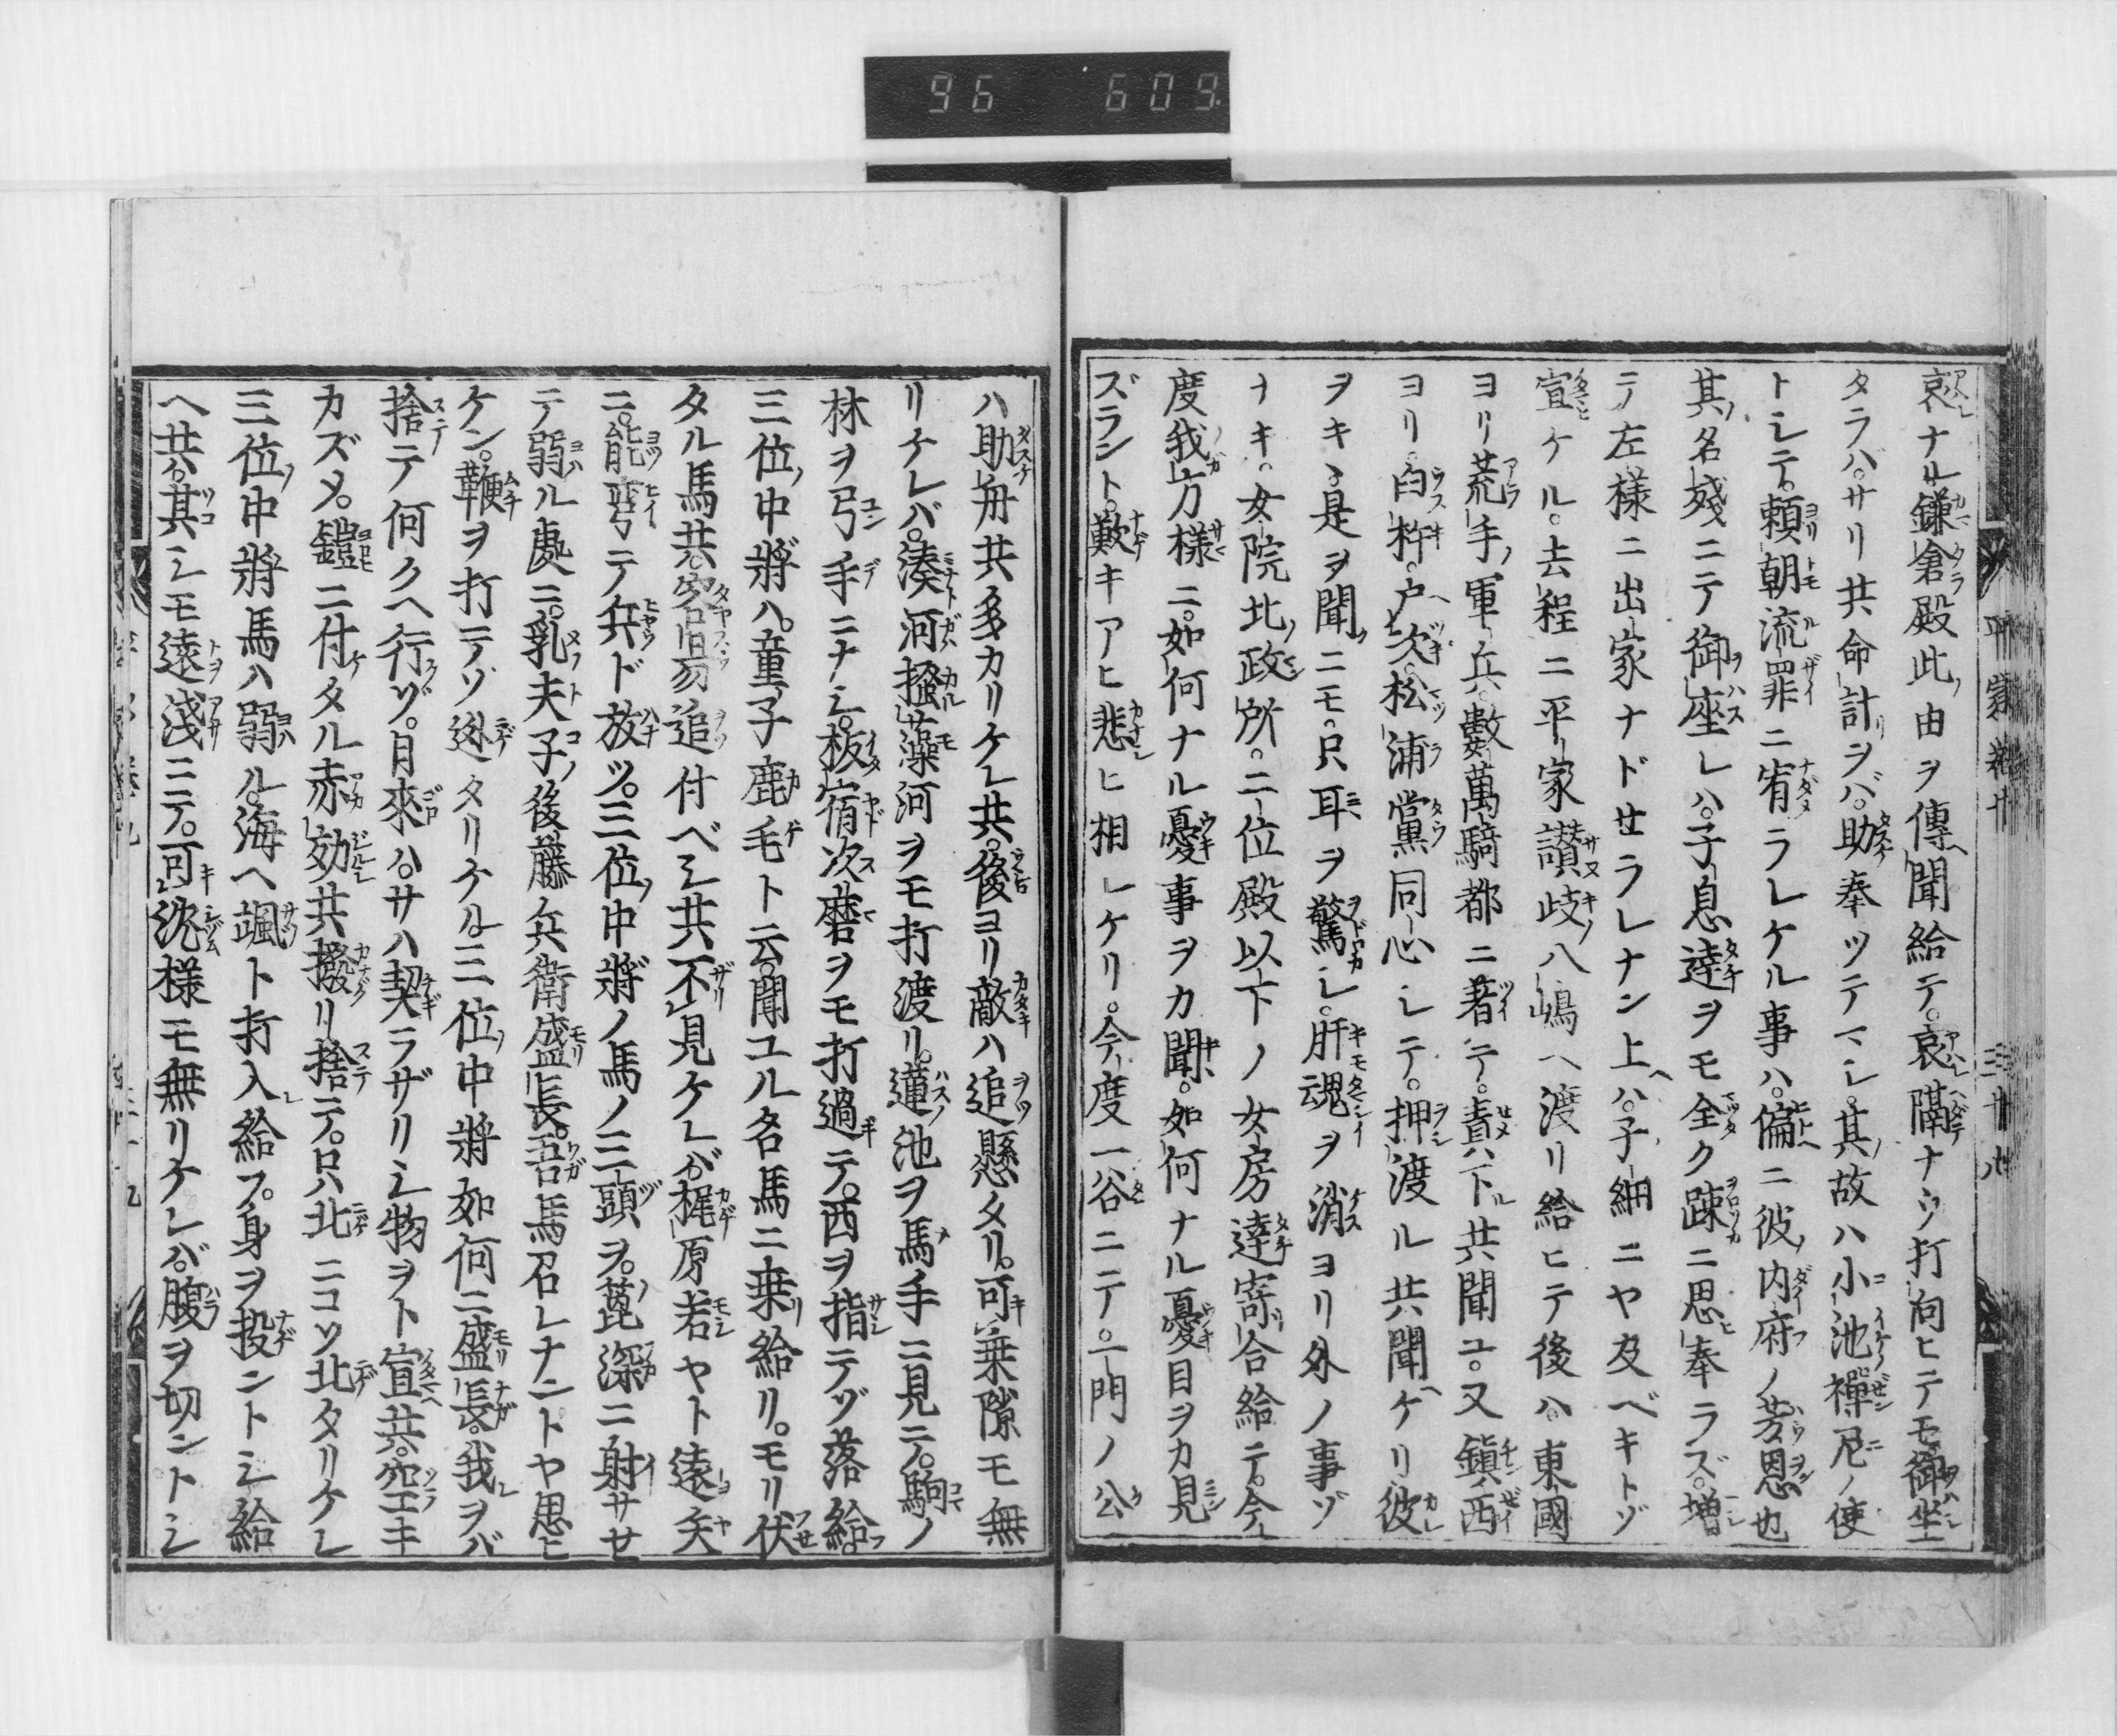 96 609.
哀ナル鎌倉殿此由ヲ傳聞給テ。哀隔ナウ打向ヒテモ御坐
タラバ。サリ共命計ヲバ。助奉ツテマシ。其故ハ小池禪尼ノ使
トシテ。頼朝流罪ニ宥ラレケル事ハ。偏ニ彼内府ノ芳恩也
其名殘ニテ御座レハ。子息達ヲモ全ク疎ニ思奉ラズ。増
テ左様ニ出家ナドせラレナン上ハ。子細ニヤ及ベキトゾ
宣ケル。去程ニ平家讃岐八嶋ヘ渡リ給ヒテ後ハ。東國
ヨリ荒手ノ軍兵。數萬騎都ニ著テ。責下共聞ユ。又鎮西
ヨリ。臼杵。戸次。松浦黨同心シテ。押渡ル共聞ケリ彼
ヲキ。是ヲ聞ニモ。只耳ヲ驚シ。肝魂ヲ消ヨリ外ノ事ゾ
ナキ。女院北政所。二位殿以下ノ女房達寄合給テ。今
度我方様ニ。如何ナル憂事ヲカ聞。如何ナル憂目ヲカ見
ズラント。歎キアヒ悲ヒ相レケリ。今度一谷ニテ。一門ノ公
平家巻十 三十九
ハ助舟共多カリケレ共。後ヨリ敵ハ追懸タリ。可乗隙モ無
リケレバ。湊河掻藻河ヲモ打渡リ。蓮池ヲ馬手ニ見ニ。駒ノ
林ヲ弓手ニナシ。板宿次磨ヲモ打過テ。西ヲ指テゾ落給
三位中將ハ。童子鹿毛ト云。聞ユル名馬ニ乗給リ。モリ伏
タル馬共。容易追付ベシ共不見ケレガ。梶原若ヤト遠矢
ニ。能彎テ兵ド放ツ。三位中將ノ馬ノ三頭ヲ。箆深ニ射サせ
テ弱ル處ニ。乳夫子後藤兵衛盛長。吾馬召レナントヤ思ヒ
ケン。鞭ヲ打テゾ迯タリケル三位中將如何ニ盛長。我ヲバ
捨テ何クヘ行ゾ。月來ハ。サハ契ラザリシ物ヲト宣共。空エキ
カズメ。鎧ニ付タル赤効共撥リ捨テ。只北ニコソ北タリケレ
三位中將馬ハ弱ル。海ヘ颯ト打入給フ。身ヲ投ントシ給
ヘ共。其シモ遠淺ニテ。可沈様モ無リケレバ。腹ヲ切ントシ